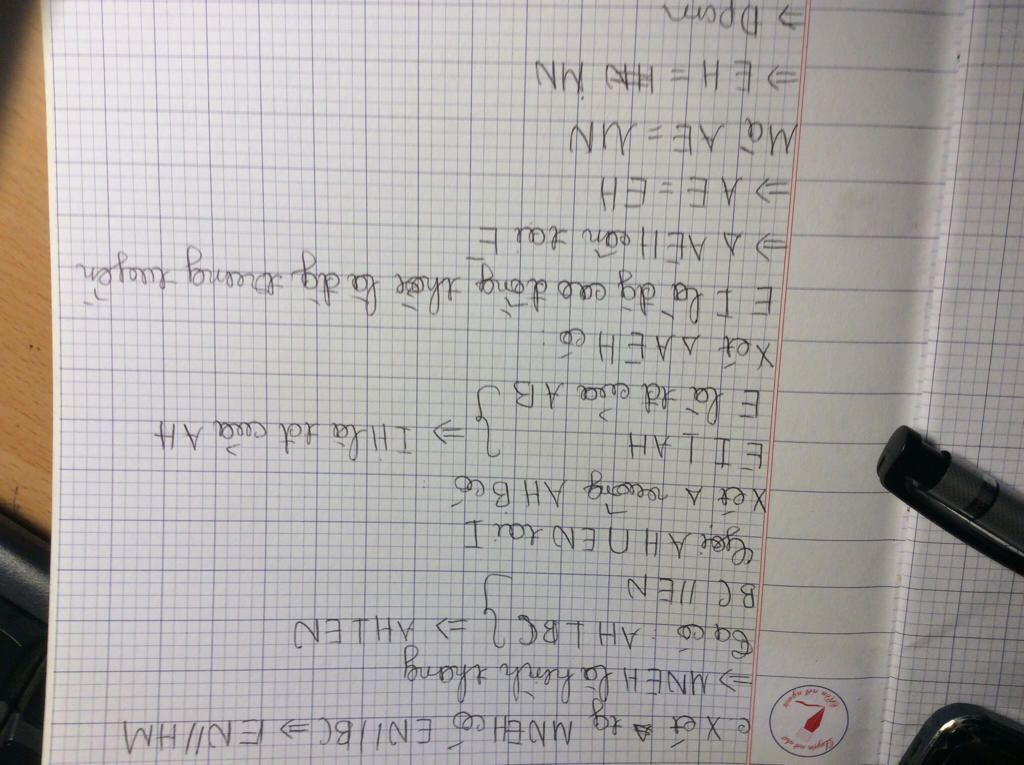 c Xét tg MNEH có EN//BC ⇒ EN//HM
⇒ MNEH là hình thang
Ta có: AH ⊥ BC } ⇒ AH ⊥ EN
BC // EN
Gọi AH ∩ EN tại I
Xét Δ vuông AHB có:
EI ⊥ AH } ⇒ IH là tđ của AH
E là tđ của AB
Xét Δ AEH có:
EI là đg cao đồng thời là đg trung tuyến
⇒ Δ AEH cân tại E
⇒ AE = EH
Mà AE = MN
⇒ EH = MN
⇒ Dpcm